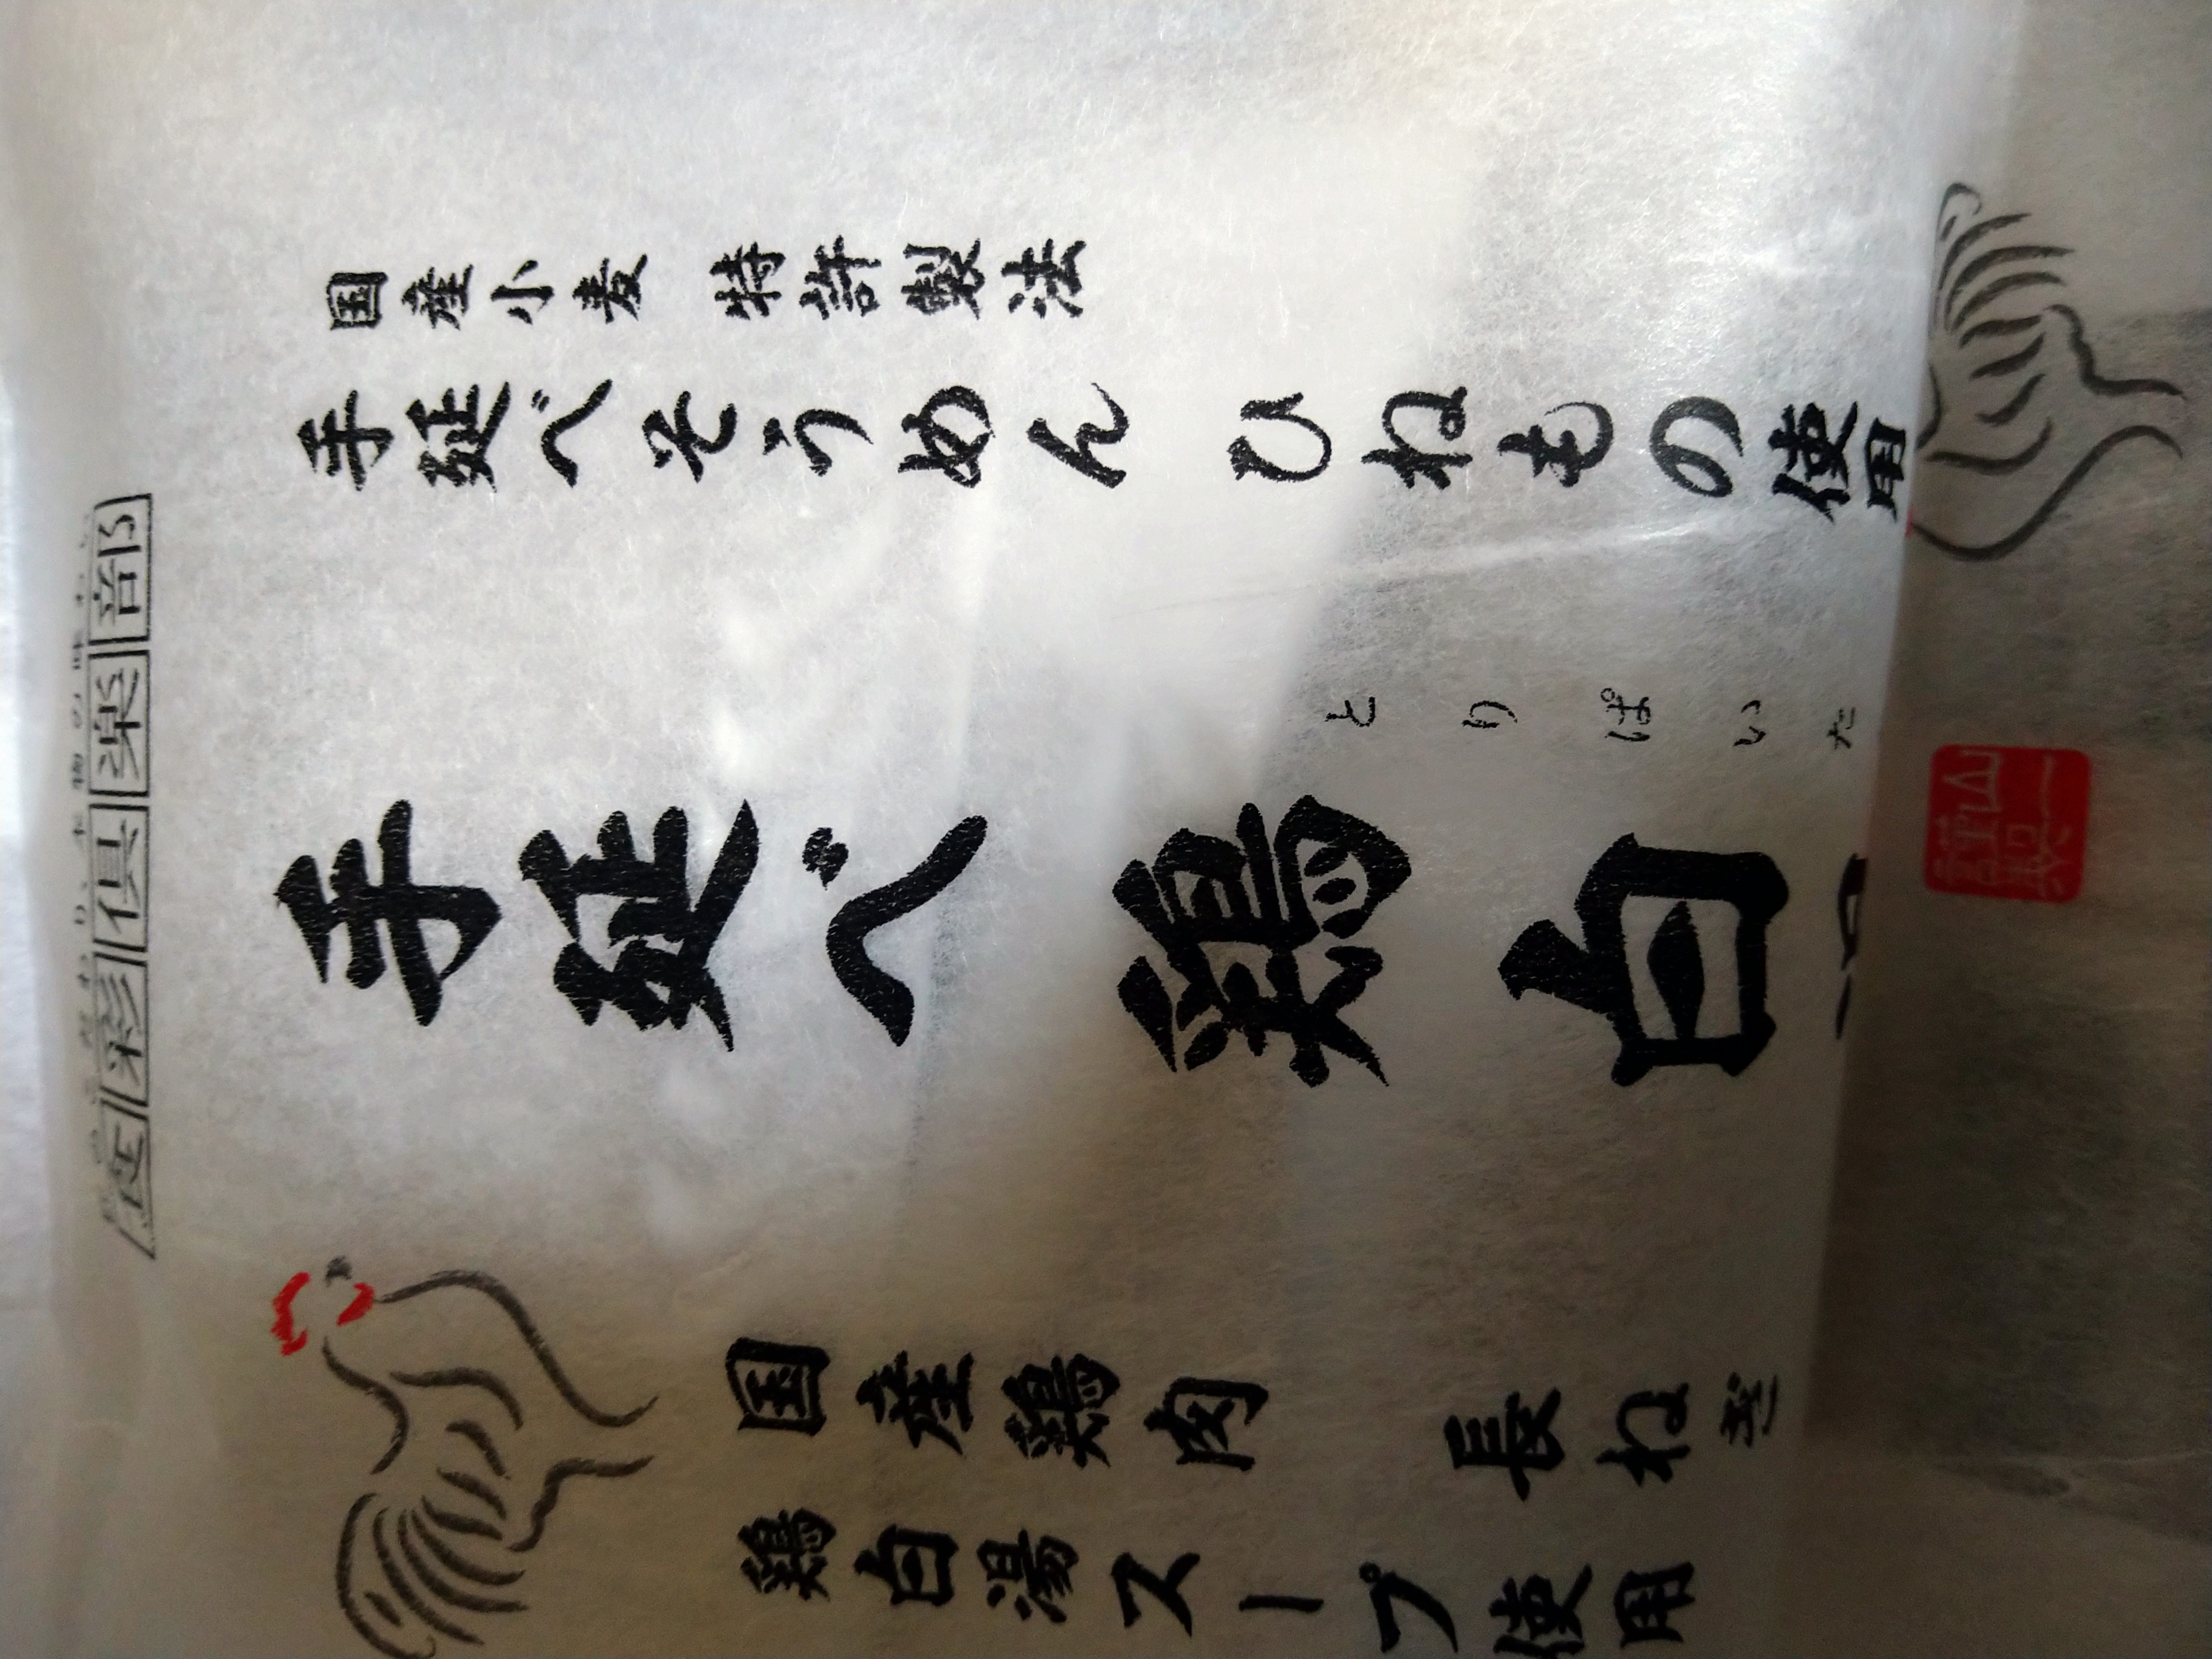 国産小麦 特許製法
手延べそうめん ひねもの使用
とりぱいた
手延べ 鶏白
国産鶏肉 長ねぎ
鶏白湯スープ使用
倶楽部